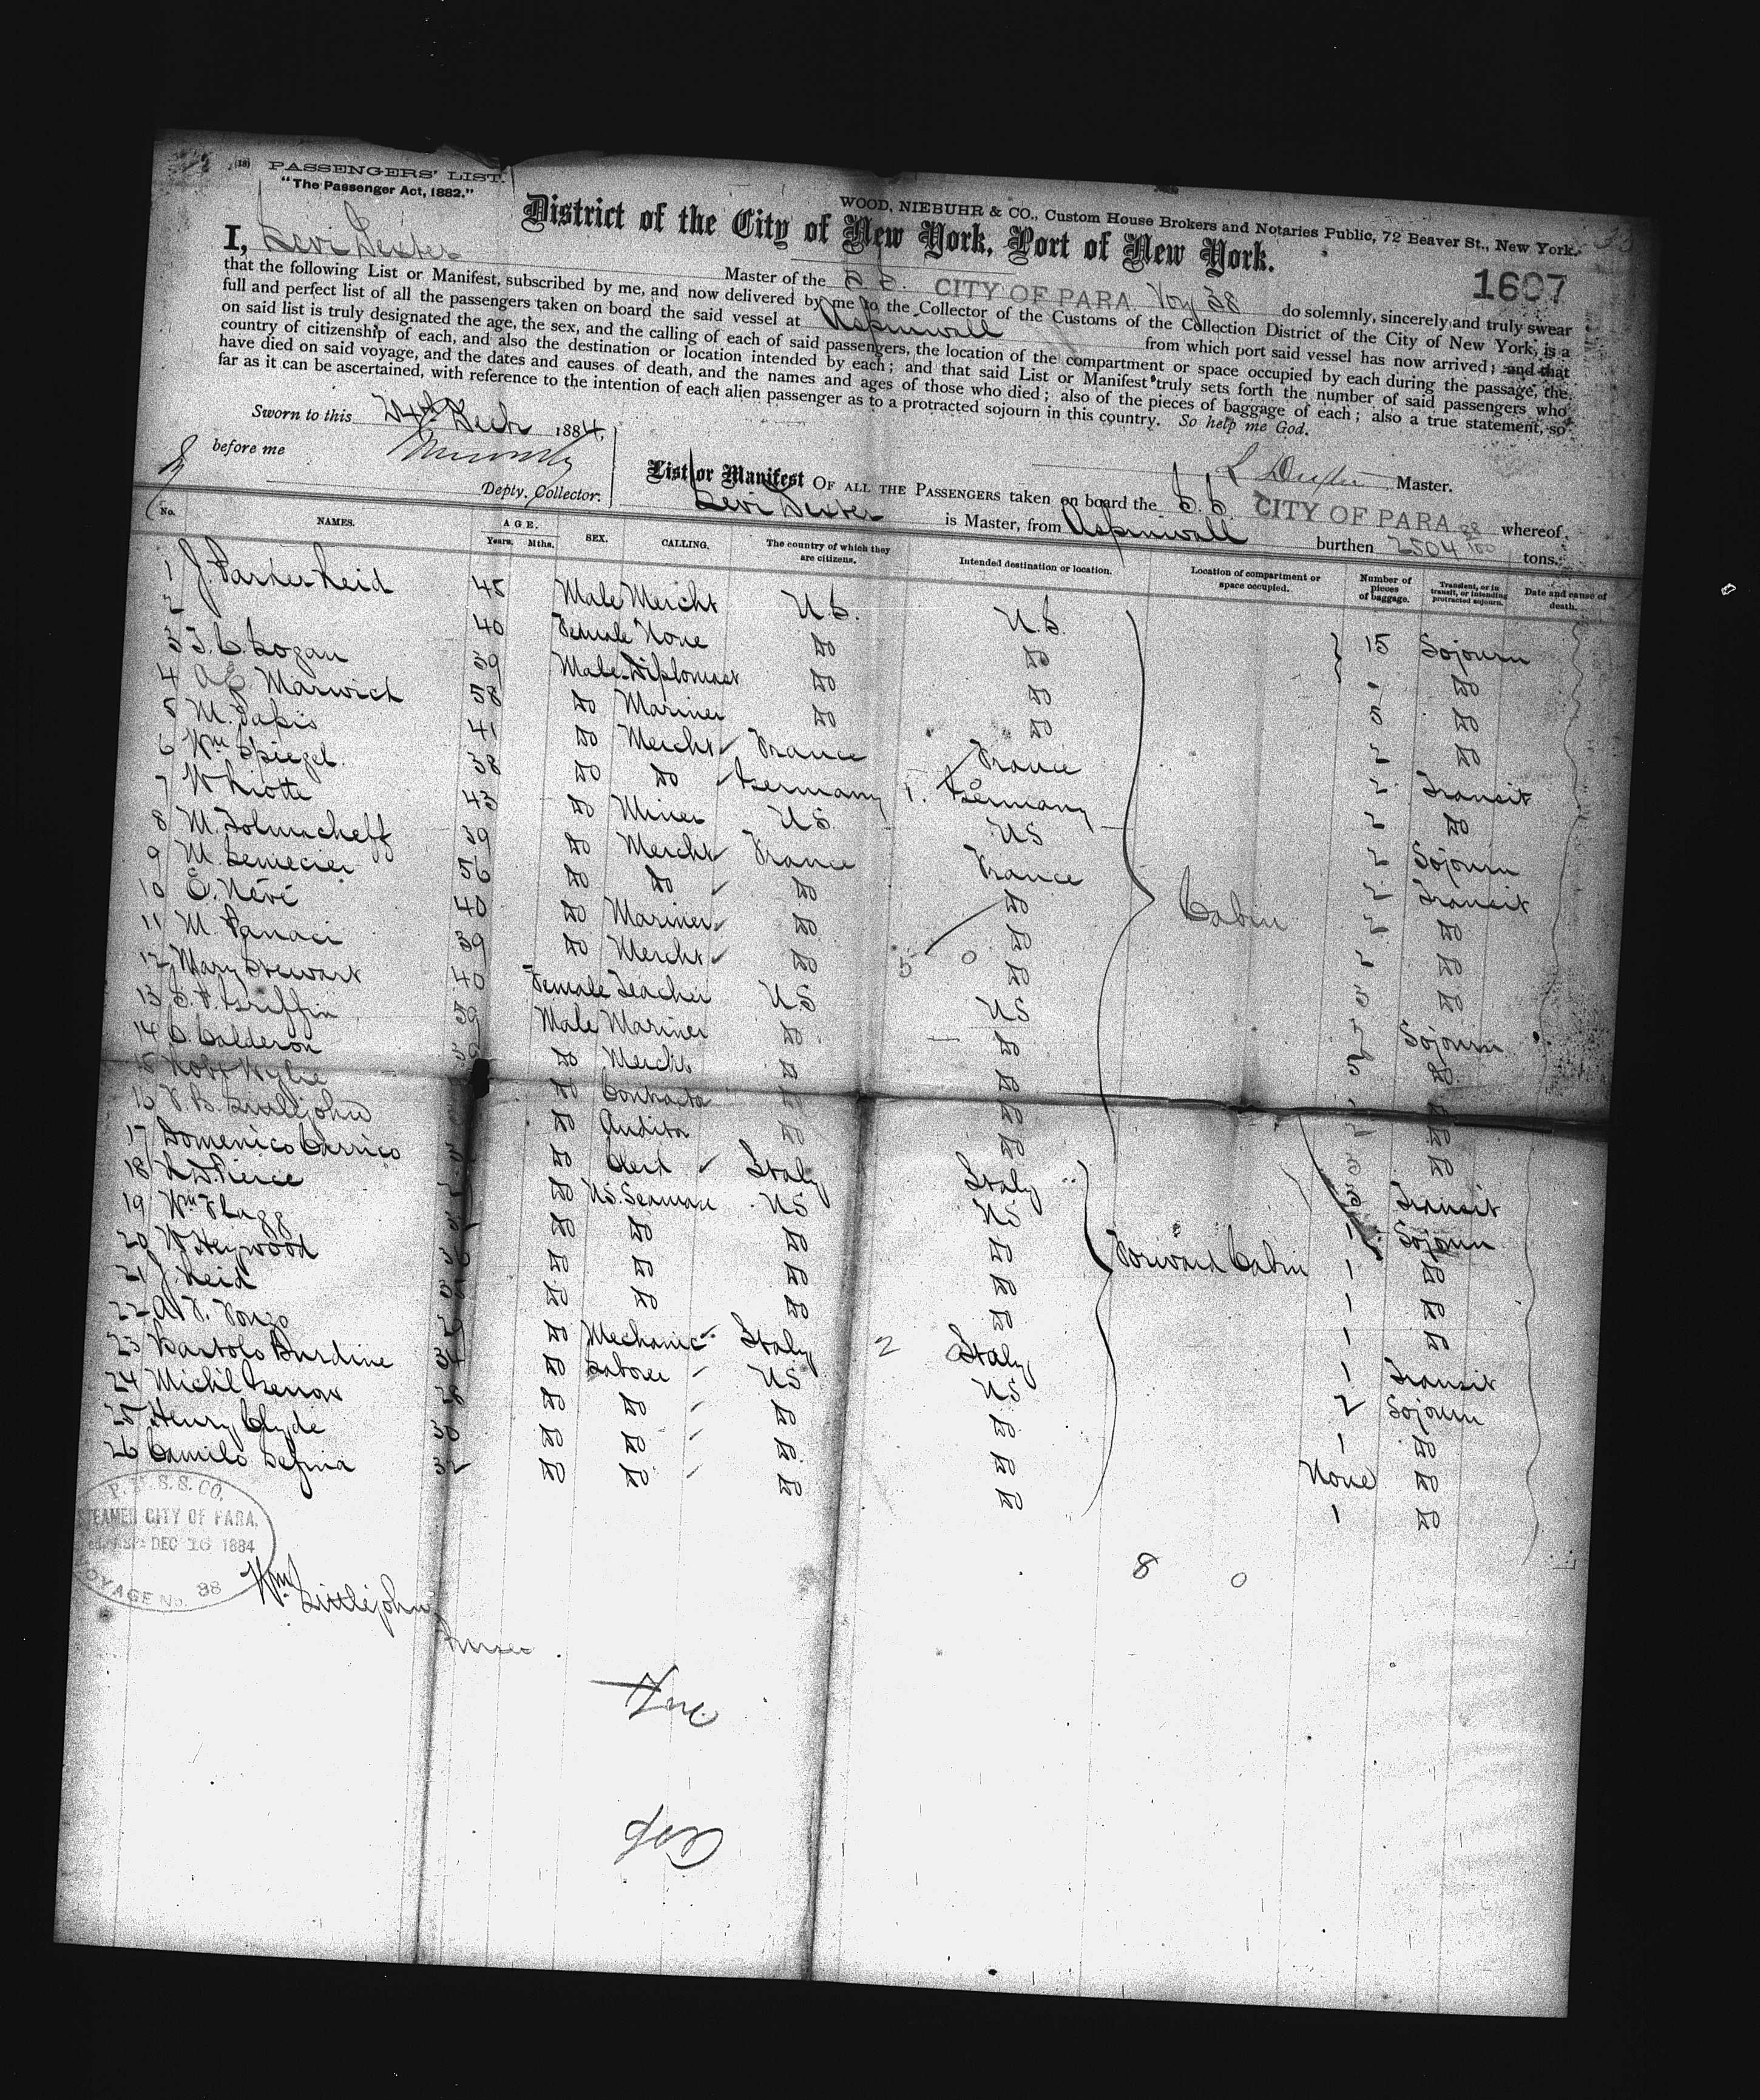 (18) PASSENGERS' LIST.
"The Passenger Act, 1882."
WOOD, NIEBUHR & CO., Custom House Brokers and Notaries Public, 72 Beaver St., New York.
District of the City of New York, Port of New York.
1607
I, Levi Dexter Master of the S.S. CITY OF PARA Voy 38 do solemnly, sincerely and truly swear
that the following List or Manifest, subscribed by me, and now delivered by me to the Collector of the Customs of the Collection District of the City of New York, is a
full and perfect list of all the passengers taken on board the said vessel at Aspinwall from which port said vessel has now arrived; and that
on said list is truly designated the age, the sex, and the calling of each of said passengers, the location of the compartment or space occupied by each during the passage, the
country of citizenship of each, and also the destination or location intended by each; and that said List or Manifest truly sets forth the number of said passengers who
have died on said voyage, and the dates and causes of death, and the names and ages of those who died; also of the pieces of baggage of each; also a true statement, so
far as it can be ascertained, with reference to the intention of each alien passenger as to a protracted sojourn in this country. So help me God.
Sworn to this Decbr 1884,
before me
L Dexter Master.
Depty. Collector.
List or Manifest OF ALL THE PASSENGERS taken on board the S.S. CITY OF PARA whereof
Levi Dexter is Master, from Aspinwall burthen 2504 88/100 tons.
No. NAMES. AGE. Years. Mths. SEX. CALLING. The country of which they are citizens. Intended destination or location. Location of compartment or space occupied. Number of pieces of baggage. Transient, or in transit, or intending protracted sojourn. Date and cause of death.
1 J. Parker Reid 45 Male Mercht U.S. U.S. 15 Sojourn
2 40 Female None Do Do - Do
3 T. C. Logan 39 Male Diplomat Do Do 5 Do
4 AE Marwich 58 Do Mariner Do Do 2 Do
5 M. 41 Do Mercht France France 2 Transit
6 Wm Spiegel 38 Do Do Germany Germany 2 Do
7 W 43 Do Miner US US 2 Sojourn
8 M. Tolmacheff 39 Do Mercht France France 2 Transit
9 M. Lemecier 56 Do Do Do Do Do
10 E. Névé 40 Do Mariner Do Do 2 Do
11 M. Panaci 39 Do Mercht Do Do Do
12 Mary Stewart 40 Female Teacher US US Sojourn
13 Griffin 39 Male Mariner Do Do Do
14 C. Calderon Do Mercht Do Do Do
15 Robt Wylie Do Contractor Do Do Do
16 Littlejohn Do Auditor Do Do
17 Domenico Carrico Do Clerk Italy Italy Transit
18 Pierce Do US. Seaman US US 1 Sojourn
19 Wm Flagg Do Do Do Do 1 Do
20 W Heywood Do Do Do Do 1 Do
21 J. Reid Do Do Do Do 1 Do
22 Do Mechanic Italy Italy 1 Transit
23 Bartolo Burdine 34 Do Laborer US US 2 Sojourn
24 Michl 28 Do Do Do Do 1 Do
25 Henry Clyde 30 Do Do Do Do None Do
26 Camilo 32 Do Do Do Do 1 Do
Cabin
Forward Cabin
5 0
2
8 0
S. S. CO.
STEAMER CITY OF PARA,
DEC 16 1884
VOYAGE No. 38
Wm Littlejohn
Purser